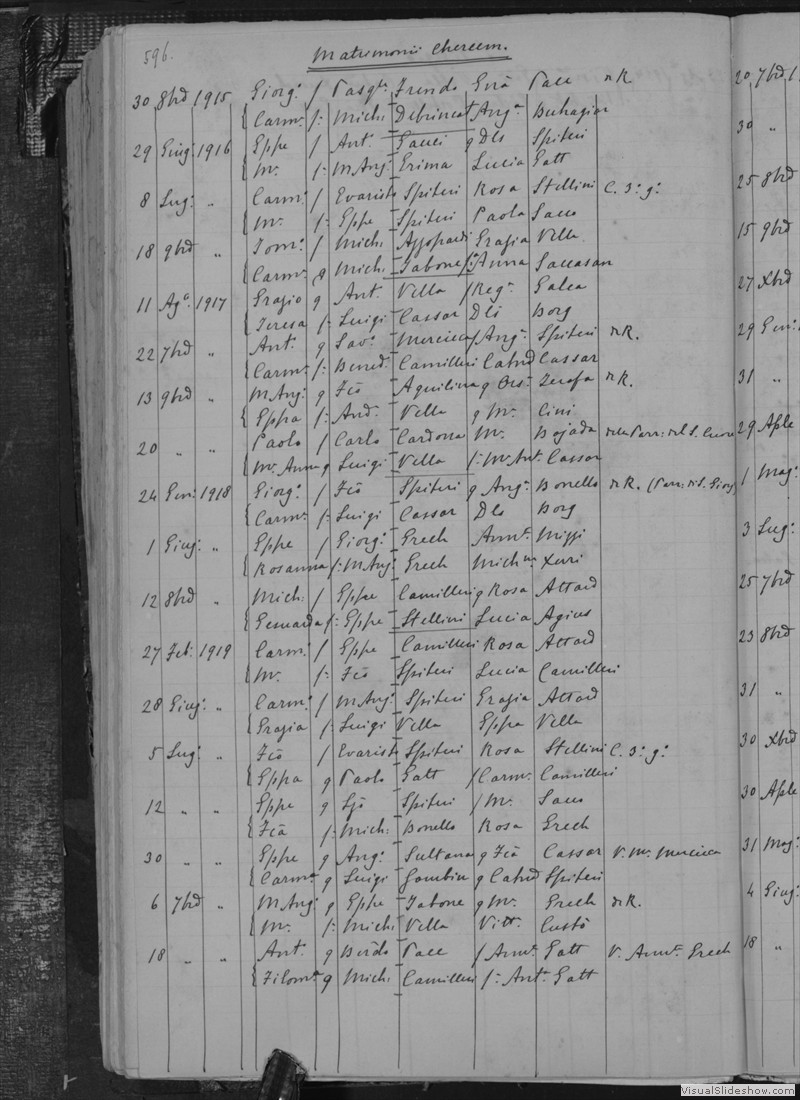 596.
Matrimonii Chercem.
30 8brd 1915 Giorg.º f Pasq.le Trende Grã Pace RR
{ Carm.ª f: Mich: Debrincat Ang.ª Buhagiar
29 Giug.º 1916 Gppe f Ant. Gauci g Dlo Spiteri
{ M.ª f: M Ang: Grima Lucia Gatt
8 Lug.º " Carm.º f Evaristo Spiteri Rosa Stellini C. 3.º g.º
{ M.ª f: Gppe Spiteri Paola Sacco
18 9brd " Tom.º f Mich: Azzopardi Grazia Vella
{ Carm.ª g Mich: Tabone f: Anna Saccasan
11 Ag.º 1917 Grazio g Ant. Vella f Reg.ª Galea
{ Teresa f: Luigi Cassar Dlo Borg
22 7brd " Ant.º g Sav.º Mercieca f Ang.ª Spiteri RR.
{ Carm.ª f: Bened.º Camilleri Catnd Cassar
13 9brd " M Ang: g Fcõ Aquilina g Ors. Zerafa RR.
{ Gppa f: And.ª Vella g M.ª Cini
20 " " Paolo f Carlo Cardona M.ª Bajada
{ M.ª Anna g Luigi Vella f: M.ª Ant.ª Cassar
24 Gen: 1918 Giorg.º f Fcõ Spiteri g Ang.ª Bonello RR. (Parr: di S. Giorg)
{ Carm.ª f: Luigi Cassar Dlo Borg
1 Giug: " Gppe f Giorg.º Grech Annt.ª Mizzi
{ Rosanna f: M Ang: Grech Mich.na Xuri
12 8brd " Mich: f Gppe Camilleri g Rosa Attard
{ f: Gppe Stellini Lucia Agius
27 Feb: 1919 Carm.º f Gppe Camilleri Rosa Attard
{ M.ª f: Fcõ Spiteri Lucia Camilleri
28 Giug.º " Carm.º f M Ang: Spiteri Grazia Attard
{ Grazia f: Luigi Vella Gppa Vella
5 Lug: " Fcõ f Evaristo Spiteri Rosa Stellini C. 3.º g.º
{ Gppa g Paolo Gatt f Carm.ª Camilleri
12 " " Gppe g Sjõ Spiteri f M.ª Sacco
{ Fcã f: Mich: Bonello Rosa Grech
30 " " Gppe g Ang.º Sultana g Fcã Cassar V. M.ª Mercieca
{ Carm.ª g Luigi Gambin g Catnd Spiteri
6 7brd " M Ang: g Gppe Tabone g M.ª Grech RR.
{ M.ª f: Mich: Vella Vitt.ª Custõ
18 " " Ant.º g Berdo Pace f Annt.ª Gatt V. Annt.ª Grech
{ Filom.ª g Mich: Camilleri f: Ant.ª Gatt
20 7brd 1
30 "
25 8brd
15 9brd
27 Xbrd
29 Gen:
31 "
29 Aple
1 Mag:
3 Lug:
25 7brd
23 8brd
31 "
30 Xbrd
30 Aple
31 Mag:
4 Giug:
18 "
VisualSlideshow.com